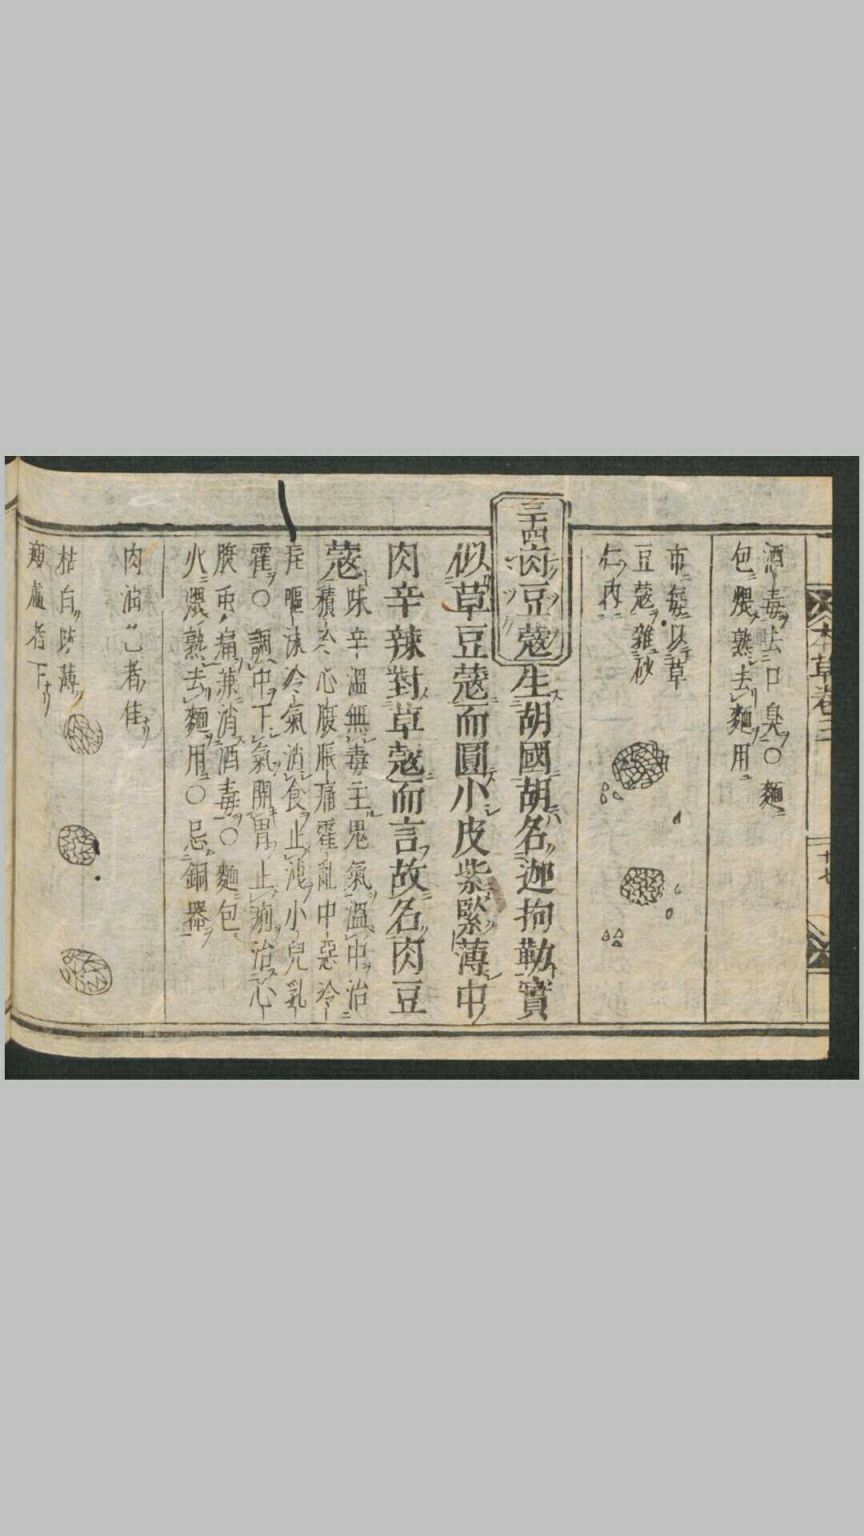 本草卷三
十七
酒毒去口臭○麵
包煨熟去麵用
市每以草
豆蔻雜砂
仁内
三十四肉豆蔻生胡國胡名迦拘勒實
似草豆蔻而圓小皮紫緊薄中
肉辛辣對草蔻而言故名肉豆
蔻
味辛溫無毒主鬼氣溫中治
積冷心腹脹痛霍亂中惡冷
疰嘔沫冷氣消食止洩小兒乳
霍○調中下氣開胃止痢治心
腹虫痛兼消酒毒○麵包
火煨熟去麵用○忌銅器
肉油色者佳
枯白味薄
瘦虛者下